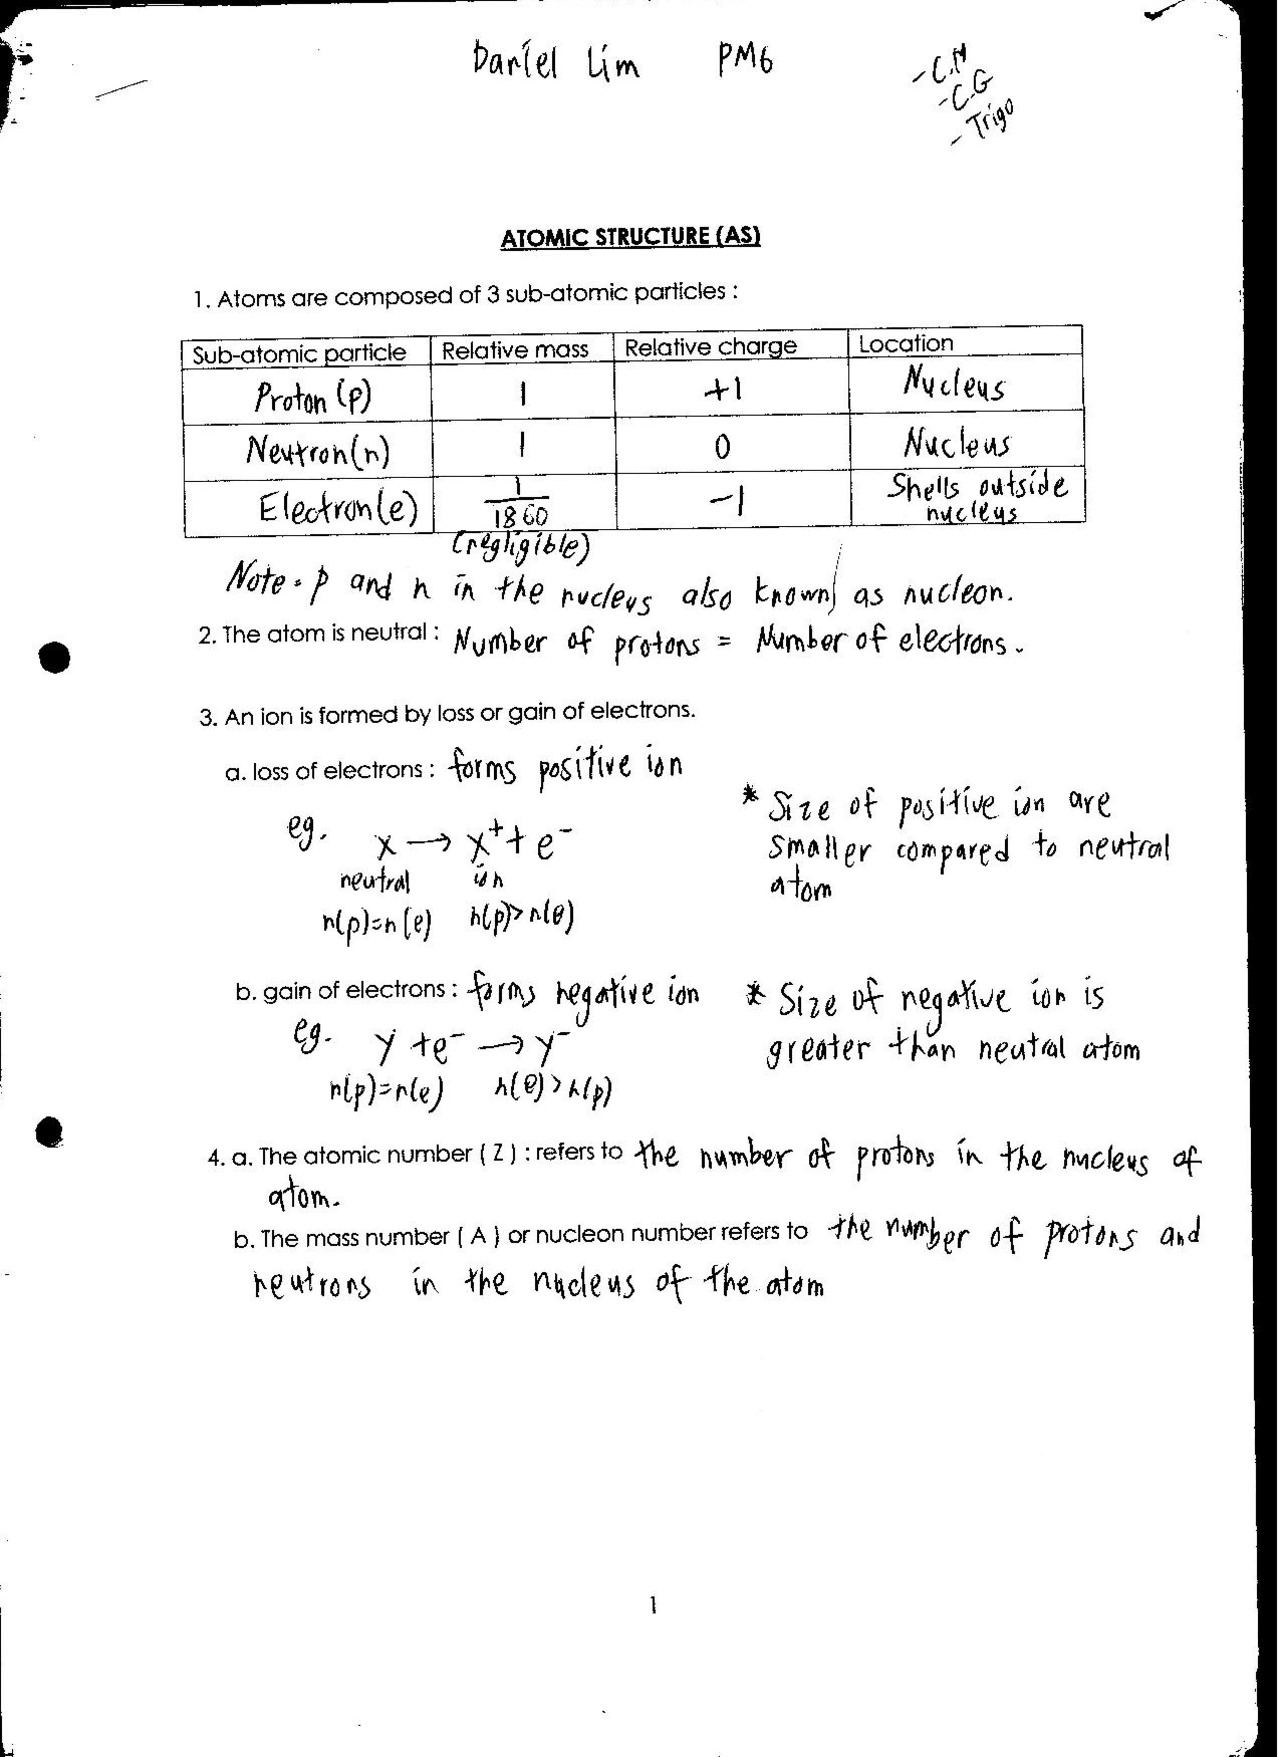 Daniel Lim PM6
- C.N
- C.G
- Trigo
ATOMIC STRUCTURE (AS)
1. Atoms are composed of 3 sub-atomic particles :
Sub-atomic particle Relative mass Relative charge Location
Proton (p) 1 +1 Nucleus
Neutron(n) 1 0 Nucleus
Electron(e) 1/1860 (negligible) -1 Shells outside nucleus
Note: p and n in the nucleus also known as nucleon.
2. The atom is neutral : Number of protons = Number of electrons.
3. An ion is formed by loss or gain of electrons.
a. loss of electrons : forms positive ion
eg. x → x⁺ + e⁻
neutral ion
n(p)=n(e) n(p)>n(e)
* Size of positive ion are
smaller compared to neutral
atom
b. gain of electrons : forms negative ion
eg. y + e⁻ → y⁻
n(p)=n(e) n(e)>n(p)
* Size of negative ion is
greater than neutral atom
4. a. The atomic number ( Z ) : refers to the number of protons in the nucleus of
atom.
b. The mass number ( A ) or nucleon number refers to the number of protons and
neutrons in the nucleus of the atom
1